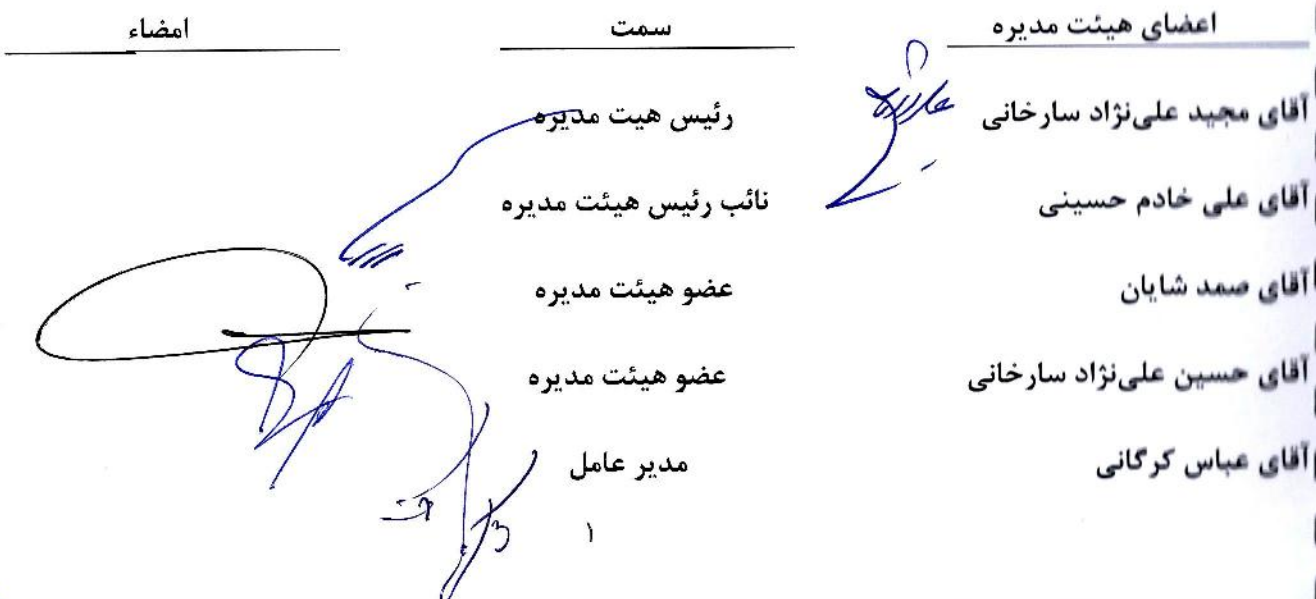 اعضای هیئت مدیره سمت امضاء
آقای مجید علی‌نژاد سارخانی رئیس هیت مدیره
آقای علی خادم حسینی نائب رئیس هیئت مدیره
آقای صمد شایان عضو هیئت مدیره
آقای حسین علی‌نژاد سارخانی عضو هیئت مدیره
آقای عباس کرگانی مدیر عامل
۱